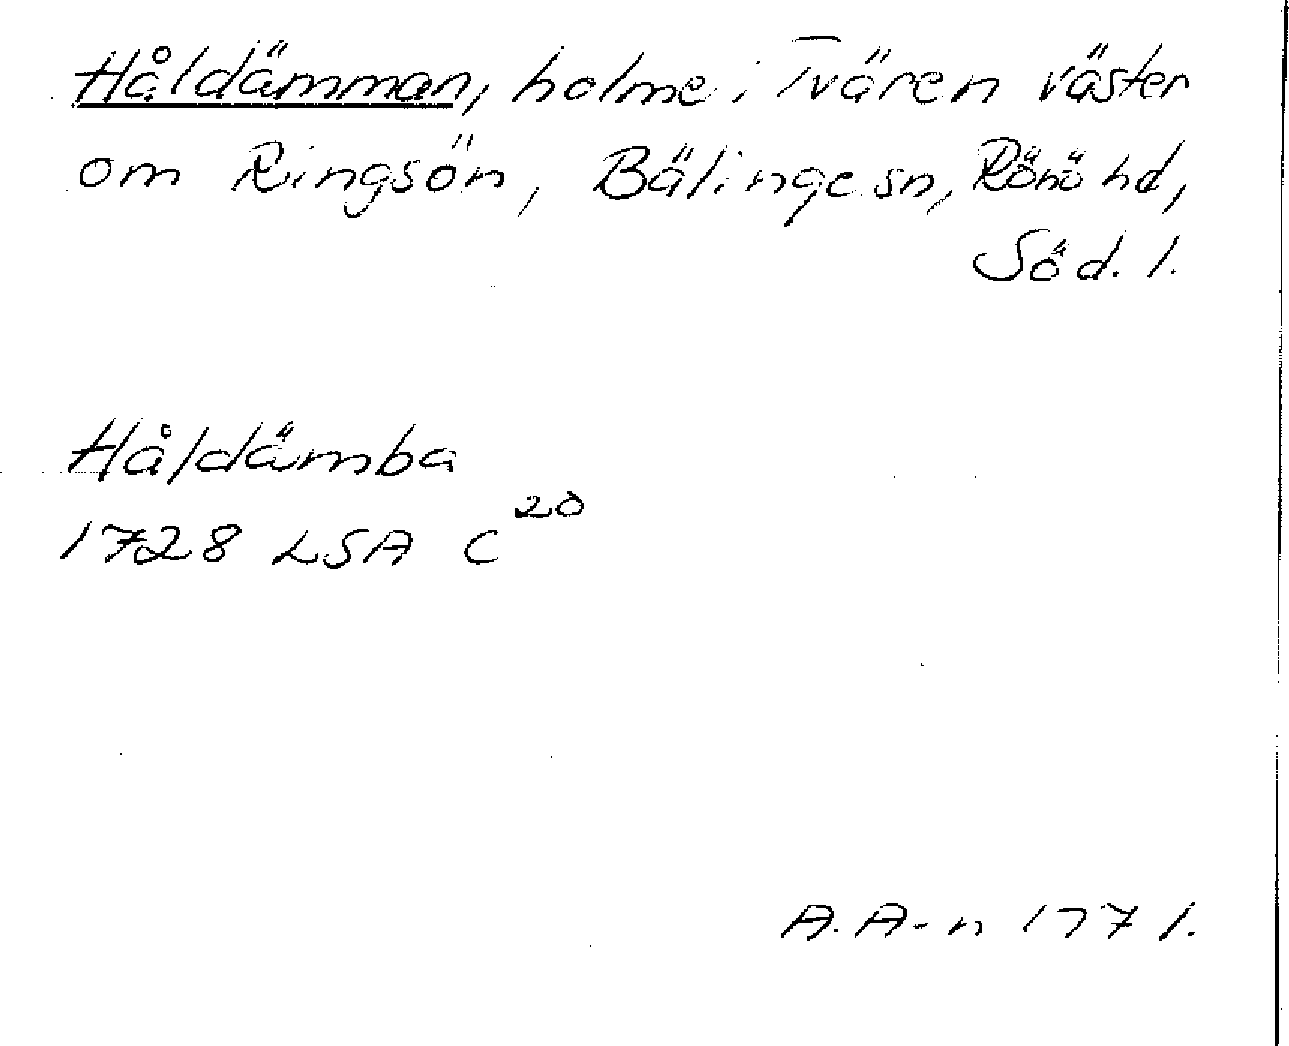 Håldämman, holme i Tvären väster
om Ringsön, Bälinge sn, Rönö hd,
Söd. l.
Håldämba
1728 LSA C 20
A. A-n 1771.